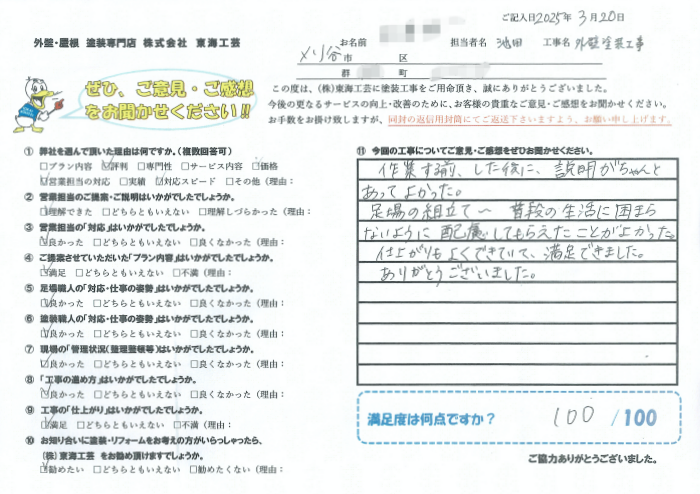 ご記入日2025年 3月20日
外壁・屋根 塗装専門店 株式会社 東海工芸
お名前 担当者名 池田 工事名 外壁塗装工事
刈谷市 区
群 町
ぜひ、ご意見・ご感想
をお聞かせください!!
この度は、(株)東海工芸に塗装工事をご用命頂き、誠にありがとうございました。
今後の更なるサービスの向上・改善のために、お客様の貴重なご意見・ご感想をお聞かせください。
お手数をお掛け致しますが、同封の返信用封筒にてご返送下さいますよう、お願い申し上げます。
① 弊社を選んで頂いた理由は何ですか。(複数回答可)
□プラン内容 ☑評判 □専門性 □サービス内容 ☑価格
☑営業担当の対応 □実績 ☑対応スピード □その他(理由:
② 営業担当のご提案・ご説明はいかがでしたでしょうか。
☑理解できた □どちらともいえない □理解しづらかった(理由:
③ 営業担当の「対応」はいかがでしたでしょうか。
☑良かった □どちらともいえない □良くなかった(理由:
④ ご提案させていただいた「プラン内容」はいかがでしたでしょうか。
☑満足 □どちらともいえない □不満(理由:
⑤ 足場職人の「対応・仕事の姿勢」はいかがでしたでしょうか。
☑良かった □どちらともいえない □良くなかった(理由:
⑥ 塗装職人の「対応・仕事の姿勢」はいかがでしたでしょうか。
☑良かった □どちらともいえない □良くなかった(理由:
⑦ 現場の「管理状況(整理整頓等)はいかがでしたでしょうか。
☑良かった □どちらともいえない □良くなかった(理由:
⑧ 「工事の進め方」はいかがでしたでしょうか。
☑良かった □どちらともいえない □良くなかった(理由:
⑨ 工事の「仕上がり」はいかがでしたでしょうか。
☑満足 □どちらともいえない □不満(理由:
⑩ お知り合いに塗装・リフォームをお考えの方がいらっしゃったら、
(株)東海工芸 をお勧め頂けますでしょうか。
☑勧めたい □どちらともいえない □勧めたくない(理由:
⑪ 今回の工事についてご意見・ご感想をぜひお聞かせください。
作業する前、した後に、説明がちゃんと
あってよかった。
足場の組立て〜 普段の生活に困まら
ないように配慮してもらえたことが良かった。
仕上がりもよくできていて、満足できました。
ありがとうございました。
満足度は何点ですか? 100 /100
ご協力ありがとうございました。